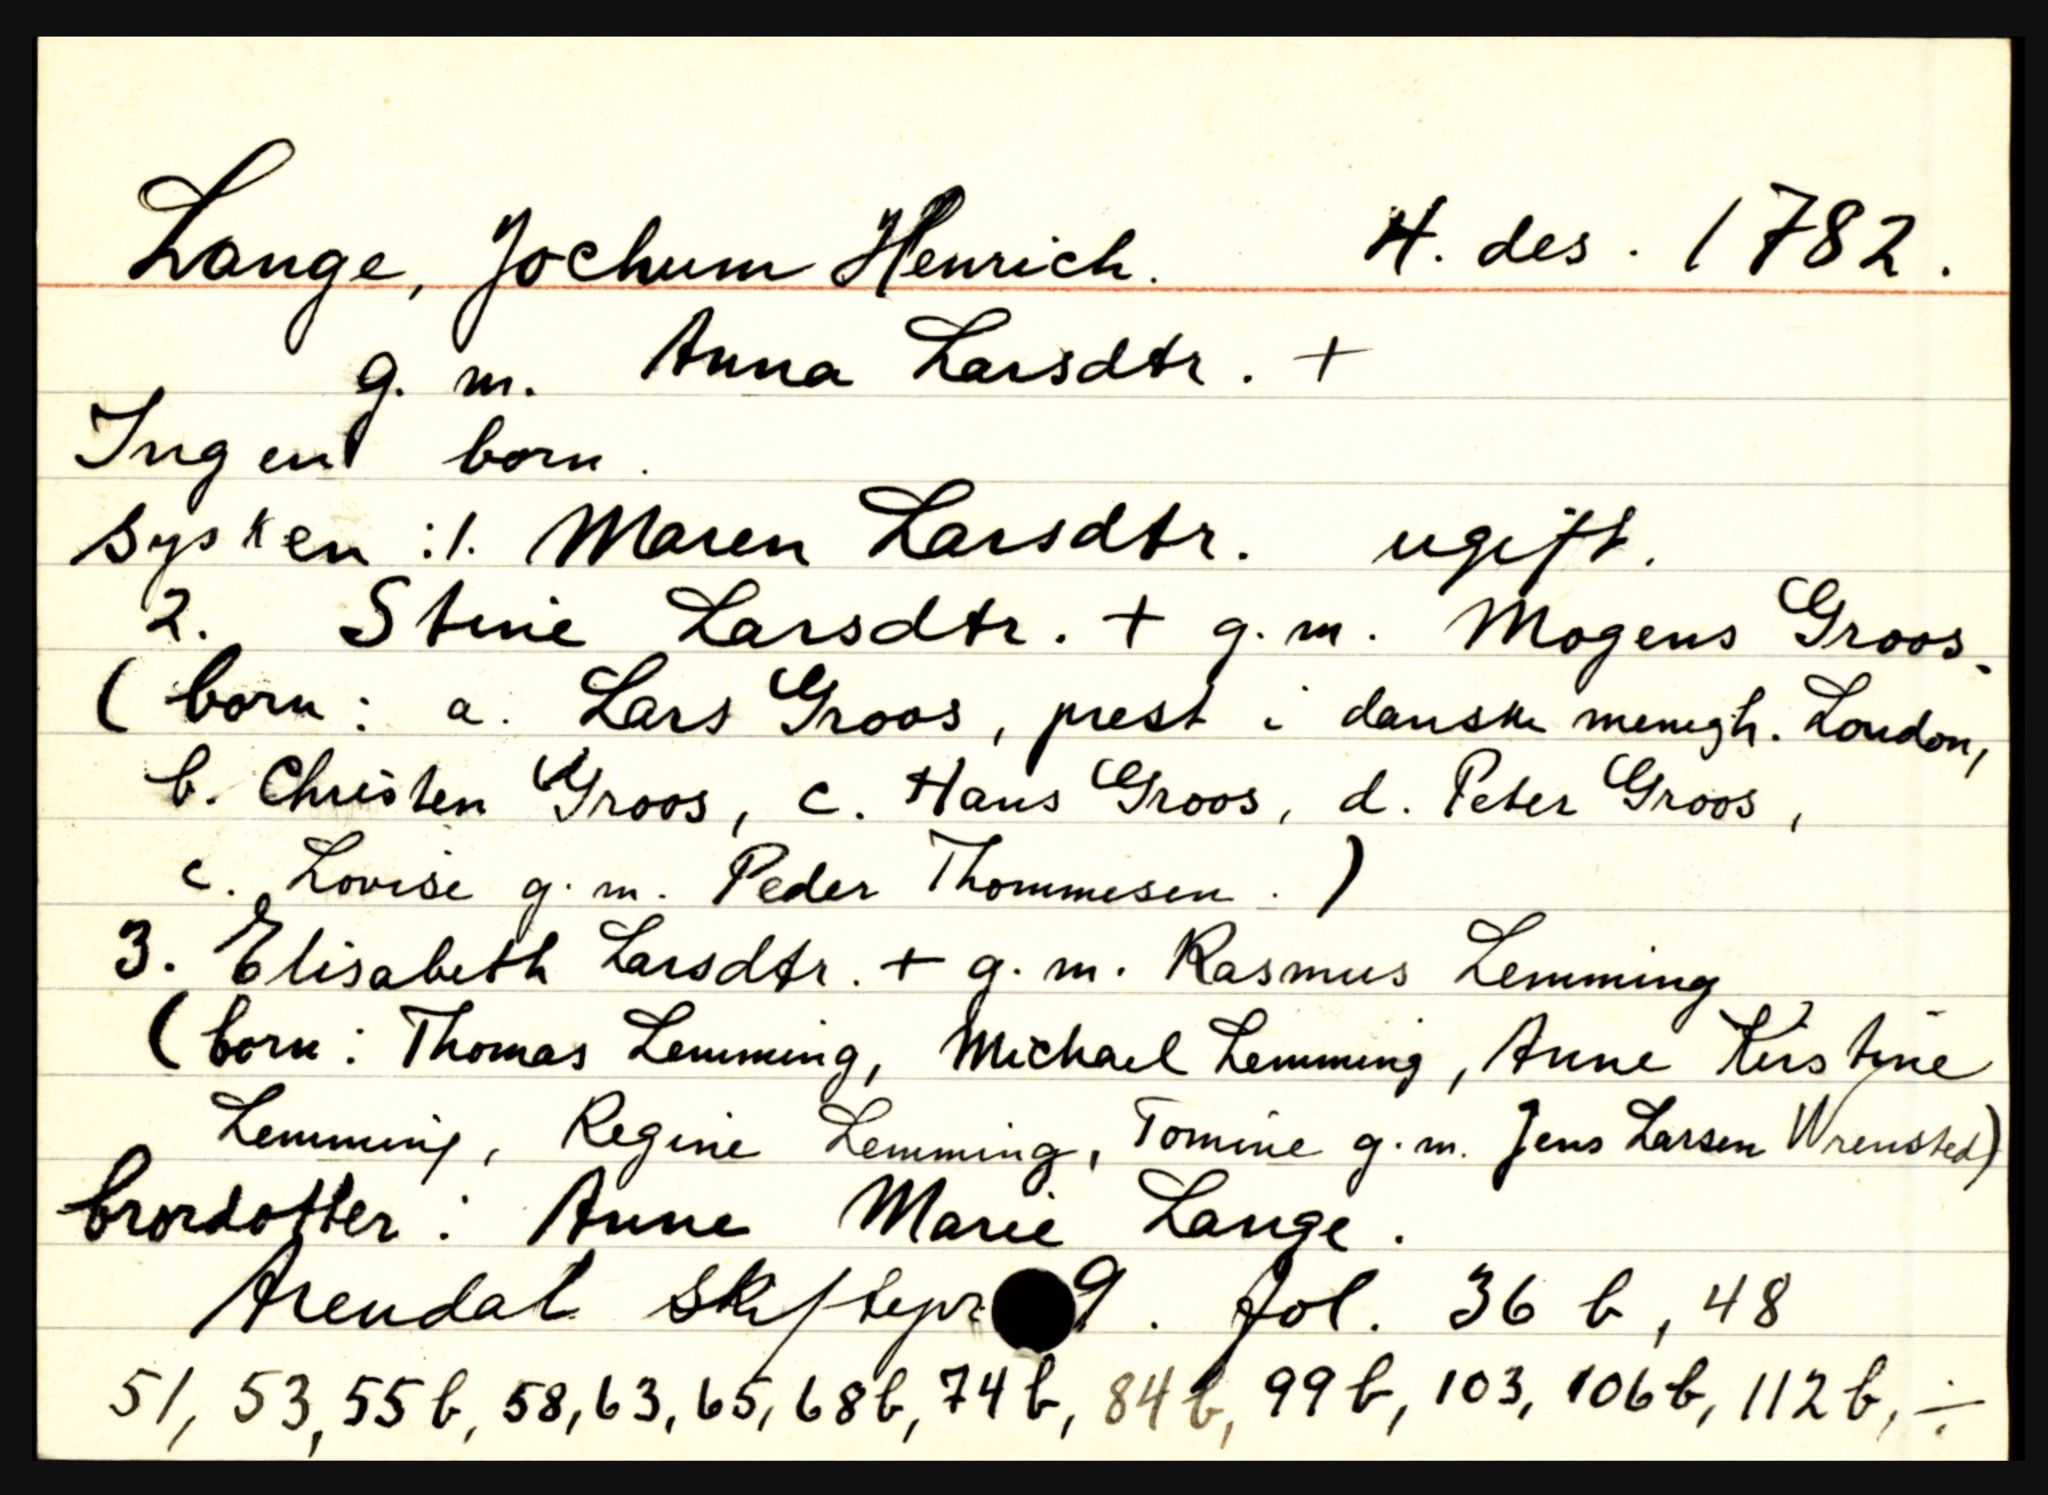 Lange, Jochum Henrich. 4. des. 1782.
g. m. Anna Larsdtr. +
Ingen born.
Sysken: 1. Maren Larsdtr. ugift.
2. Stine Larsdtr. + g. m. Mogens Groos.
(born: a. Lars Groos, prest i danske menigh. London,
b. Christen Groos, c. Hans Groos, d. Peter Groos,
c. Lovise g. m. Peder Thommesen.)
3. Elisabeth Larsdtr. + g. m. Rasmus Lemming
(born: Thomas Lemming, Michael Lemming, Anne Kirstine
Lemming, Regine Lemming, Tomine g. m. Jens Larsen Wrensted)
brordotter: Anne Marie Lange.
Arendal skiftepr 9. fol. 36 b, 48
51, 53, 55 b, 58, 63, 65, 68 b, 74 b, 84 b, 99 b, 103, 106 b, 112 b, ÷